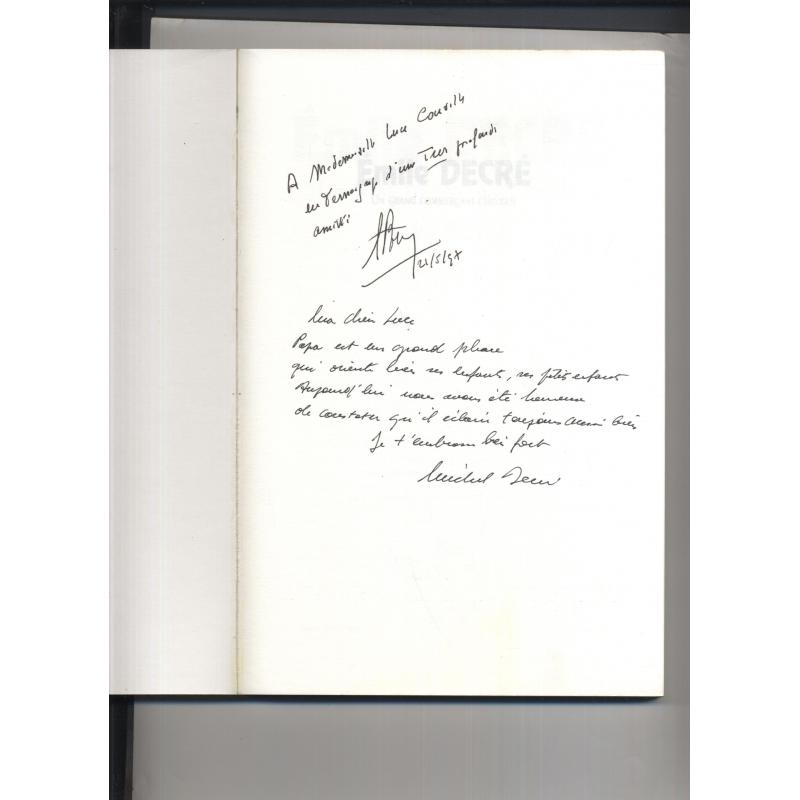 A Mademoiselle Luce Courville
en témoignage d'une Très profonde
amitié
21/5/97
Émile DECRÉ
UN GRAND COMMERÇANT
Ma chère Luce
Papa est un grand phare
qui oriente bien ses enfants, ses ptits enfants
Aujourd'hui nous avons été heureux
de constater qu'il éclaire toujours aussi bien
Je t'embrasse bien fort
Michel Decré